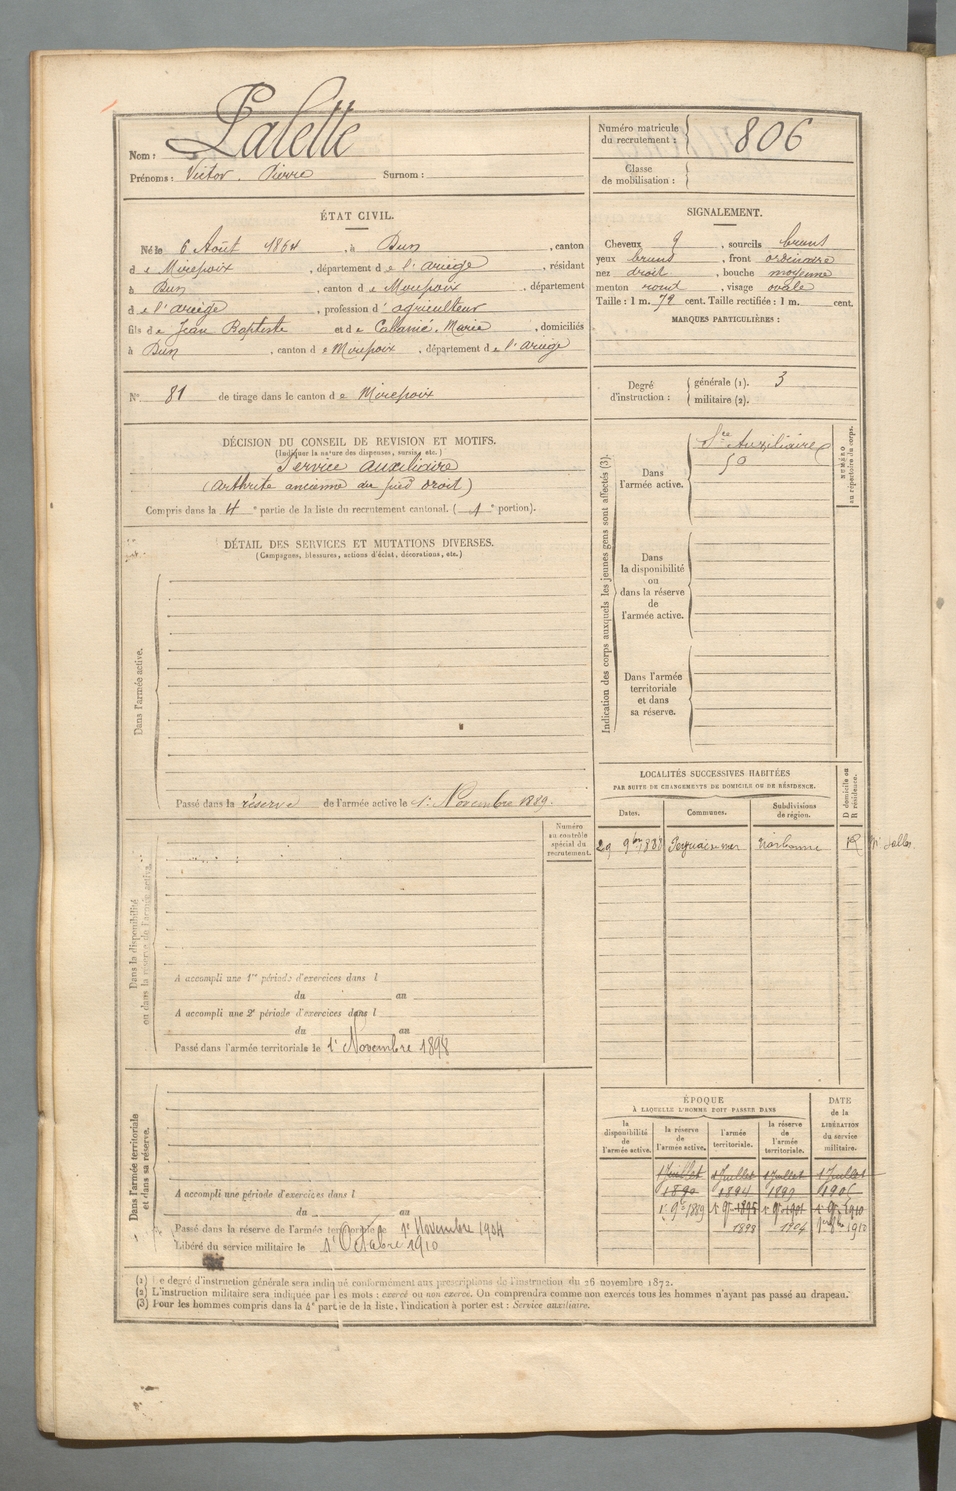 Nom : Palette
Prénoms : Victor. Pierre Surnom :
Numéro matricule du recrutement : 806
Classe de mobilisation :
ÉTAT CIVIL.
Né le 6 Août 1864, à Dun, canton
de Mirepoix, département de l'Ariège, résidant
à Dun, canton de Mirepoix, département
de l'Ariège, profession d'agriculteur
fils de Jean Baptiste et de Marie, domiciliés
à Dun, canton de Mirepoix, département de l'Ariège
N° 81 de tirage dans le canton de Mirepoix
SIGNALEMENT.
Cheveux, sourcils bruns
yeux bruns, front ordinaire
nez droit, bouche moyenne
menton rond, visage ovale
Taille : 1 m. 72 cent. Taille rectifiée : 1 m. cent.
MARQUES PARTICULIÈRES :
Degré d'instruction : générale (1). 3
militaire (2).
DÉCISION DU CONSEIL DE REVISION ET MOTIFS.
(Indiquer la nature des dispenses, sursis, etc.)
Service auxiliaire
(arthrite ancienne du pied droit)
Compris dans la 4e partie de la liste du recrutement cantonal. (1e portion).
Indication des corps auxquels les jeunes gens sont affectés (3).
Dans l'armée active.
Sce Auxiliaire
50
NUMÉRO au répertoire du corps.
Dans la disponibilité ou dans la réserve de l'armée active.
Dans l'armée territoriale et dans sa réserve.
DÉTAIL DES SERVICES ET MUTATIONS DIVERSES.
(Campagnes, blessures, actions d'éclat, décorations, etc.)
Dans l'armée active.
Passé dans la réserve de l'armée active le 1er Novembre 1889.
Numéro au contrôle spécial du recrutement.
Dans la disponibilité ou dans la réserve de l'armée active.
A accompli une 1re période d'exercices dans l
du au
A accompli une 2e période d'exercices dans l
du au
Passé dans l'armée territoriale le 1er Novembre 1898
Dans l'armée territoriale et dans sa réserve.
A accompli une période d'exercices dans l
du au
Passé dans la réserve de l'armée territoriale le 1er Novembre 1904
Libéré du service militaire le 1er Octobre 1910
LOCALITÉS SUCCESSIVES HABITÉES
PAR SUITE DE CHANGEMENTS DE DOMICILE OU DE RÉSIDENCE.
Dates. Communes. Subdivisions de région. D domicile ou R résidence.
29 9bre 1888 Narbonne R
ÉPOQUE
À LAQUELLE L'HOMME DOIT PASSER DANS
la disponibilité de l'armée active. la réserve de l'armée active. l'armée territoriale. la réserve de l'armée territoriale. DATE de la LIBÉRATION du service militaire.
1 Juillet 1 Juillet 1 Juillet 1 Juillet
1890 1894 1899 1905
1er 9bre 1889 1er 9bre 1895 1er 9bre 1901 1910
1898 1904 1910
(1) Le degré d'instruction générale sera indiqué conformément aux prescriptions de l'instruction du 26 novembre 1872.
(2) L'instruction militaire sera indiquée par les mots : exercé ou non exercé. On comprendra comme non exercés tous les hommes n'ayant pas passé au drapeau.
(3) Pour les hommes compris dans la 4e partie de la liste, l'indication à porter est : Service auxiliaire.